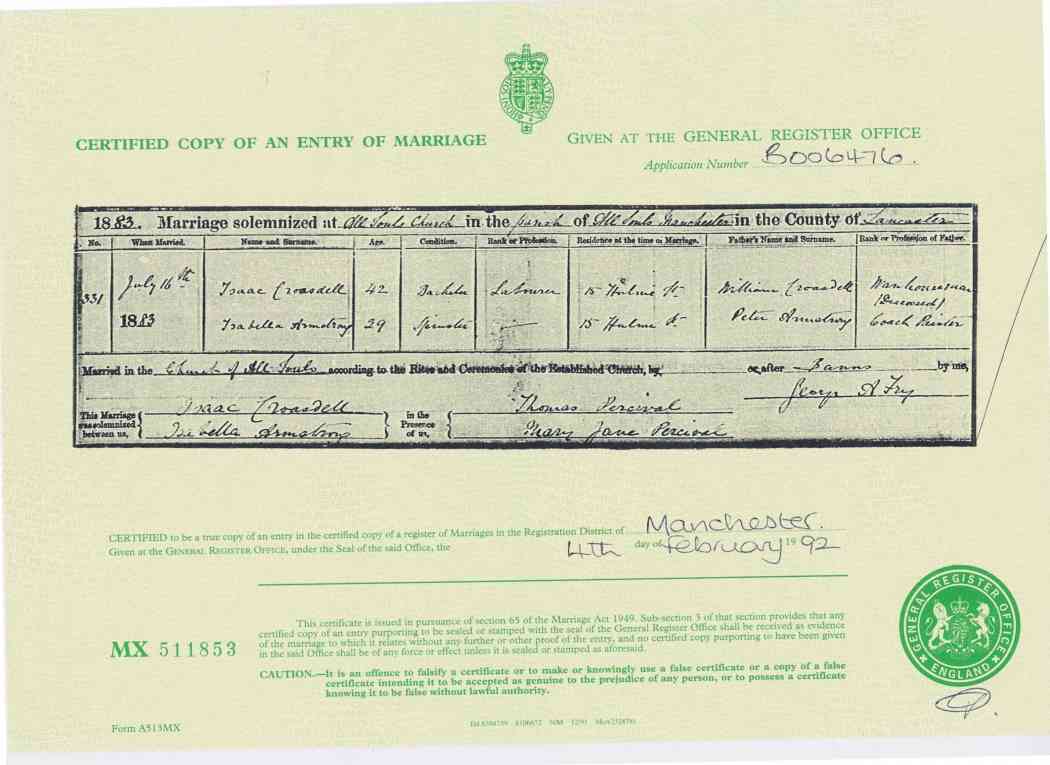 CERTIFIED COPY OF AN ENTRY OF MARRIAGE
GIVEN AT THE GENERAL REGISTER OFFICE
Application Number B006476.
1883. Marriage solemnized at All Souls Church in the parish of All Souls Manchester in the County of Lancaster
No. When Married. Name and Surname. Age. Condition. Rank or Profession. Residence at the time of Marriage. Father's Name and Surname. Rank or Profession of Father.
331 July 16th 1883
Isaac Croasdell 42 Bachelor Labourer 15 Hulme St. William Croasdell Warehouseman (Deceased)
Isabella Armstrong 29 Spinster — 15 Hulme St. Peter Armstrong Coach Painter
Married in the Church of All Souls according to the Rites and Ceremonies of the Established Church, by or after Banns by me,
George A Fry
This Marriage was solemnized between us, { Isaac Croasdell
Isabella Armstrong }
in the Presence of us, { Thomas Percival
Mary Jane Percival
CERTIFIED to be a true copy of an entry in the certified copy of a register of Marriages in the Registration District of Manchester.
Given at the GENERAL REGISTER OFFICE, under the Seal of the said Office, the 4th day of February 1992
MX 511853
This certificate is issued in pursuance of section 65 of the Marriage Act 1949. Sub-section 3 of that section provides that any
certified copy of an entry purporting to be sealed or stamped with the seal of the General Register Office shall be received as evidence
of the marriage to which it relates without any further or other proof of the entry, and no certified copy purporting to have been given
in the said Office shall be of any force or effect unless it is sealed or stamped as aforesaid.
CAUTION.—It is an offence to falsify a certificate or to make or knowingly use a false certificate or a copy of a false
certificate intending it to be accepted as genuine to the prejudice of any person, or to possess a certificate
knowing it to be false without lawful authority.
GENERAL REGISTER OFFICE
★ ENGLAND ★
Form A513MX